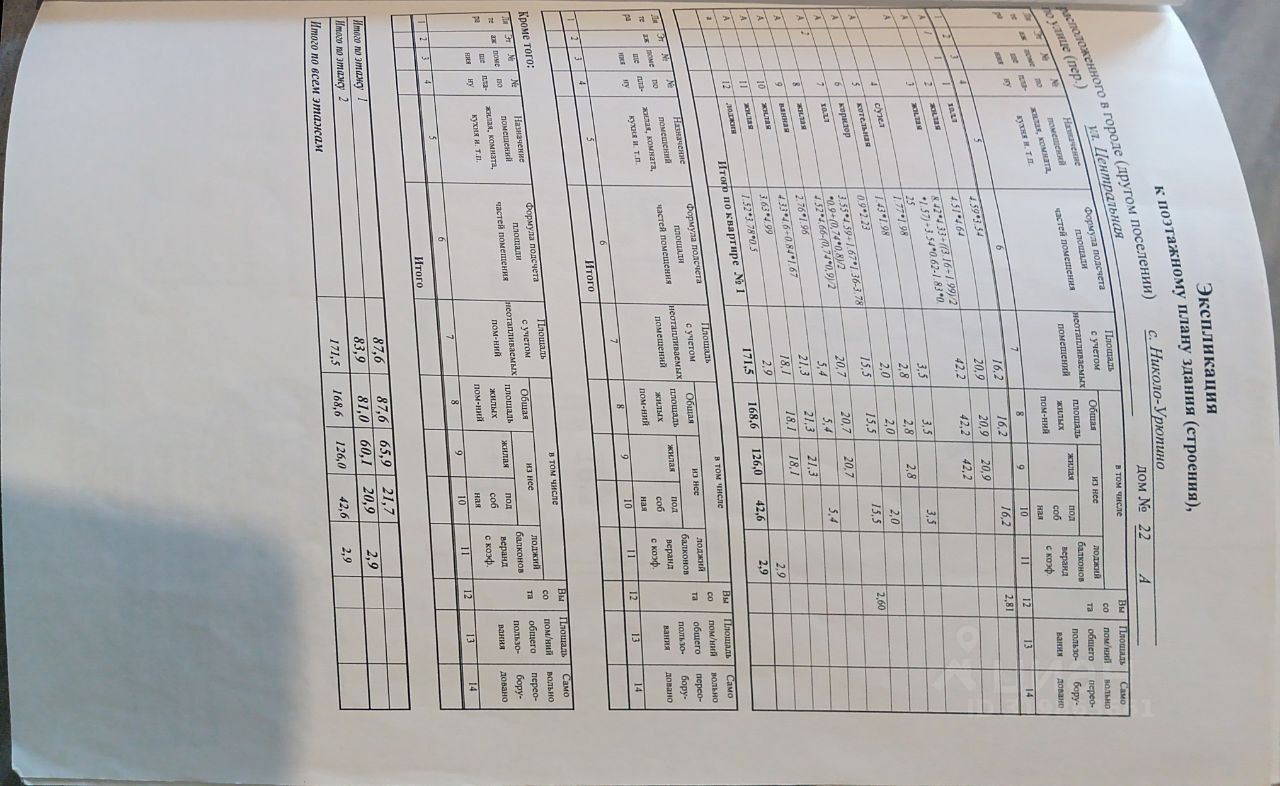 Экспликация
к поэтажному плану здания (строения),
расположенного в городе (другом поселении) с. Николо-Урюпино
по улице (пер.) ул. Центральная дом № 22 А
Ли те ра | Эт аж | № поме ше ния | № по пла- ну | Назначение помещений жилая, комната, кухня и. т.п. | Формула подсчета площади частей помещения | Площадь с учетом неотапливаемых помещений | Общая площадь жилых пом-ний | в том числе | из нее | жилая | под соб ная | лоджий балконов веранд с коэф. | Вы со та | Площадь пом/ний общего пользо- вания | Само вольно перео- бору- довано
1 2 3 4 5 6 7 8 9 10 11 12 13 14
А 1 1 1 холл 4.59*3.54 16,2 16,2 16,2 2,81
А 2 жилая 4.51*4.64 20,9 20,9 20,9
А 3 жилая 8.42*4.33+((3.16+1.99)/2 *1.57)+3.54*0.62-1.83*0. 25 42,2 42,2 42,2
А 4 с/узел 1.77*1.98 3,5 3,5 3,5
А 5 котельная 1.43*1.98 2,8 2,8 2,8
А 6 коридор 0.9*2.23 2,0 2,0 2,0
А 2 7 холл 3.55*4.59+1.67*1.36-3.78 *0.9+(0.74*0.8)/2 15,5 15,5 15,5 2,60
А 8 жилая 4.52*4.66-(0.74*0.9)/2 20,7 20,7 20,7
А 9 ванная 2.76*1.96 5,4 5,4 5,4
А 10 жилая 4.33*4.6+0.84*1.67 21,3 21,3 21,3
А 11 жилая 3.63*4.99 18,1 18,1 18,1
а 12 лоджия 1.52*3.78*0.5 2,9 2,9
Итого по квартире № 1 171,5 168,6 126,0 42,6 2,9
Ли те ра | Эт аж | № поме ше ния | № по пла- ну | Назначение помещений жилая, комната, кухня и. т.п. | Формула подсчета площади частей помещения | Площадь с учетом неотапливаемых помещений | Общая площадь жилых пом-ний | в том числе | из нее | жилая | под соб ная | лоджий балконов веранд с коэф. | Вы со та | Площадь пом/ний общего пользо- вания | Само вольно перео- бору- довано
1 2 3 4 5 6 7 8 9 10 11 12 13 14
Итого
Кроме того:
Ли те ра | Эт аж | № поме ше ния | № по пла- ну | Назначение помещений жилая, комната, кухня и. т.п. | Формула подсчета площади частей помещения | Площадь с учетом неотапливаемых пом-ний | Общая площадь жилых пом-ний | в том числе | из нее | жилая | под соб ная | лоджий балконов веранд с коэф. | Вы со та | Площадь пом/ний общего пользо- вания | Само вольно перео- бору- довано
1 2 3 4 5 6 7 8 9 10 11 12 13 14
Итого
Итого по этажу 1 87,6 87,6 65,9 21,7
Итого по этажу 2 83,9 81,0 60,1 20,9 2,9
Итого по всем этажам 171,5 168,6 126,0 42,6 2,9